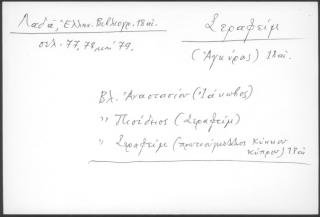 Λαδᾶ, Ἑλλην. Βιβλιογρ. 18 αἰ.
σελ. 77, 78 καὶ 79.
Σεραφείμ
(Ἀγκύρας) 18 αἰ.
Βλ. Ἀναστασίου (Ἰάκωβος)
" Πισίδειος (Σεραφείμ)
" Σεραφείμ (πρωτοσύγκελλος Κύκκου
Κύπρου) 18 αἰ